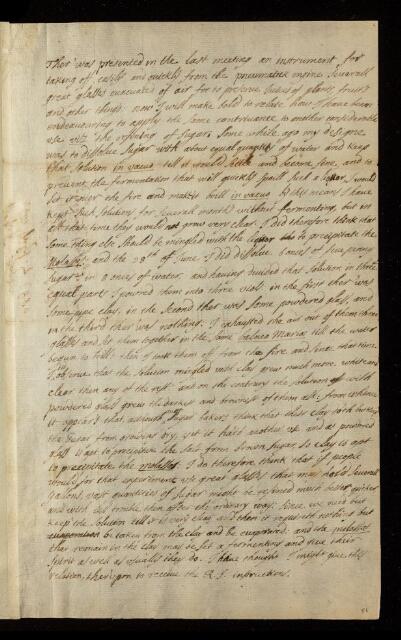 Ther was presented in the last meeting an instrument for
taking off easily and quickly from the pneumatick engine severall
great glasses evacuated of air for to preserve juices of plants, fruits
and other things. now I will make bold to relate how I have been
endeavouring to apply the same contrivance to another considerable
use viz the refining of sugars some while ago my designe
was to dissolve sugar with about equal quantity of water and keep
that solution in vacuo till it would settle and become fine, and to
prevent the fermentation that will quickly spoill such a liquor I would
set it over the fire and make it boill in vacuo by this means I have
kept such solutions for severall months without fermenting but in
all that time they would not grow very clear. I did therefore think that
some thing else should be mingled with the liquor to precipitate the
molasses and the 29th of June I did dissolve ounces of five penny
sugar in 8 onces of water, and having divided that solution in three
equal parts I poured them into three viols in the first ther was
some pipe clay, in the second ther was some powdered glass, and
in the third ther was nothing. I exhausted the air out of them three
glasses and set them together in the same balneo Mariae till the water
begun to boill: then I took them off from the fire and since that time
I observe that the solution mingled with clay grew much more white and
clear then any of the rest and on the contrary the solution with
powdered glass grew the darkest and brownest of them all: from whence
it appears that although sugar bakers think that their clay doth but keep
the sugar from growing dry, yet it hath another use and as powered
glass is apt to precipitate the salt from brown sugar so clay is apt
to precipitate the molasses. I do therefore think that if people
would for that experiment use great glasses that may hold severall
galons, vast quantities of sugar might be refined much better quicker
and with less trouble then after the ordinary way: since we need but
keep the solution till it is very clear and then it requireth nothing but
to be taken from the clay and be evaporated: and the molasses
that remain in the clay may be set a fermenting and yield their
spirit as well as usually they do. I have thought I might give this
relation, thereupon to receive the R. S. instructions.